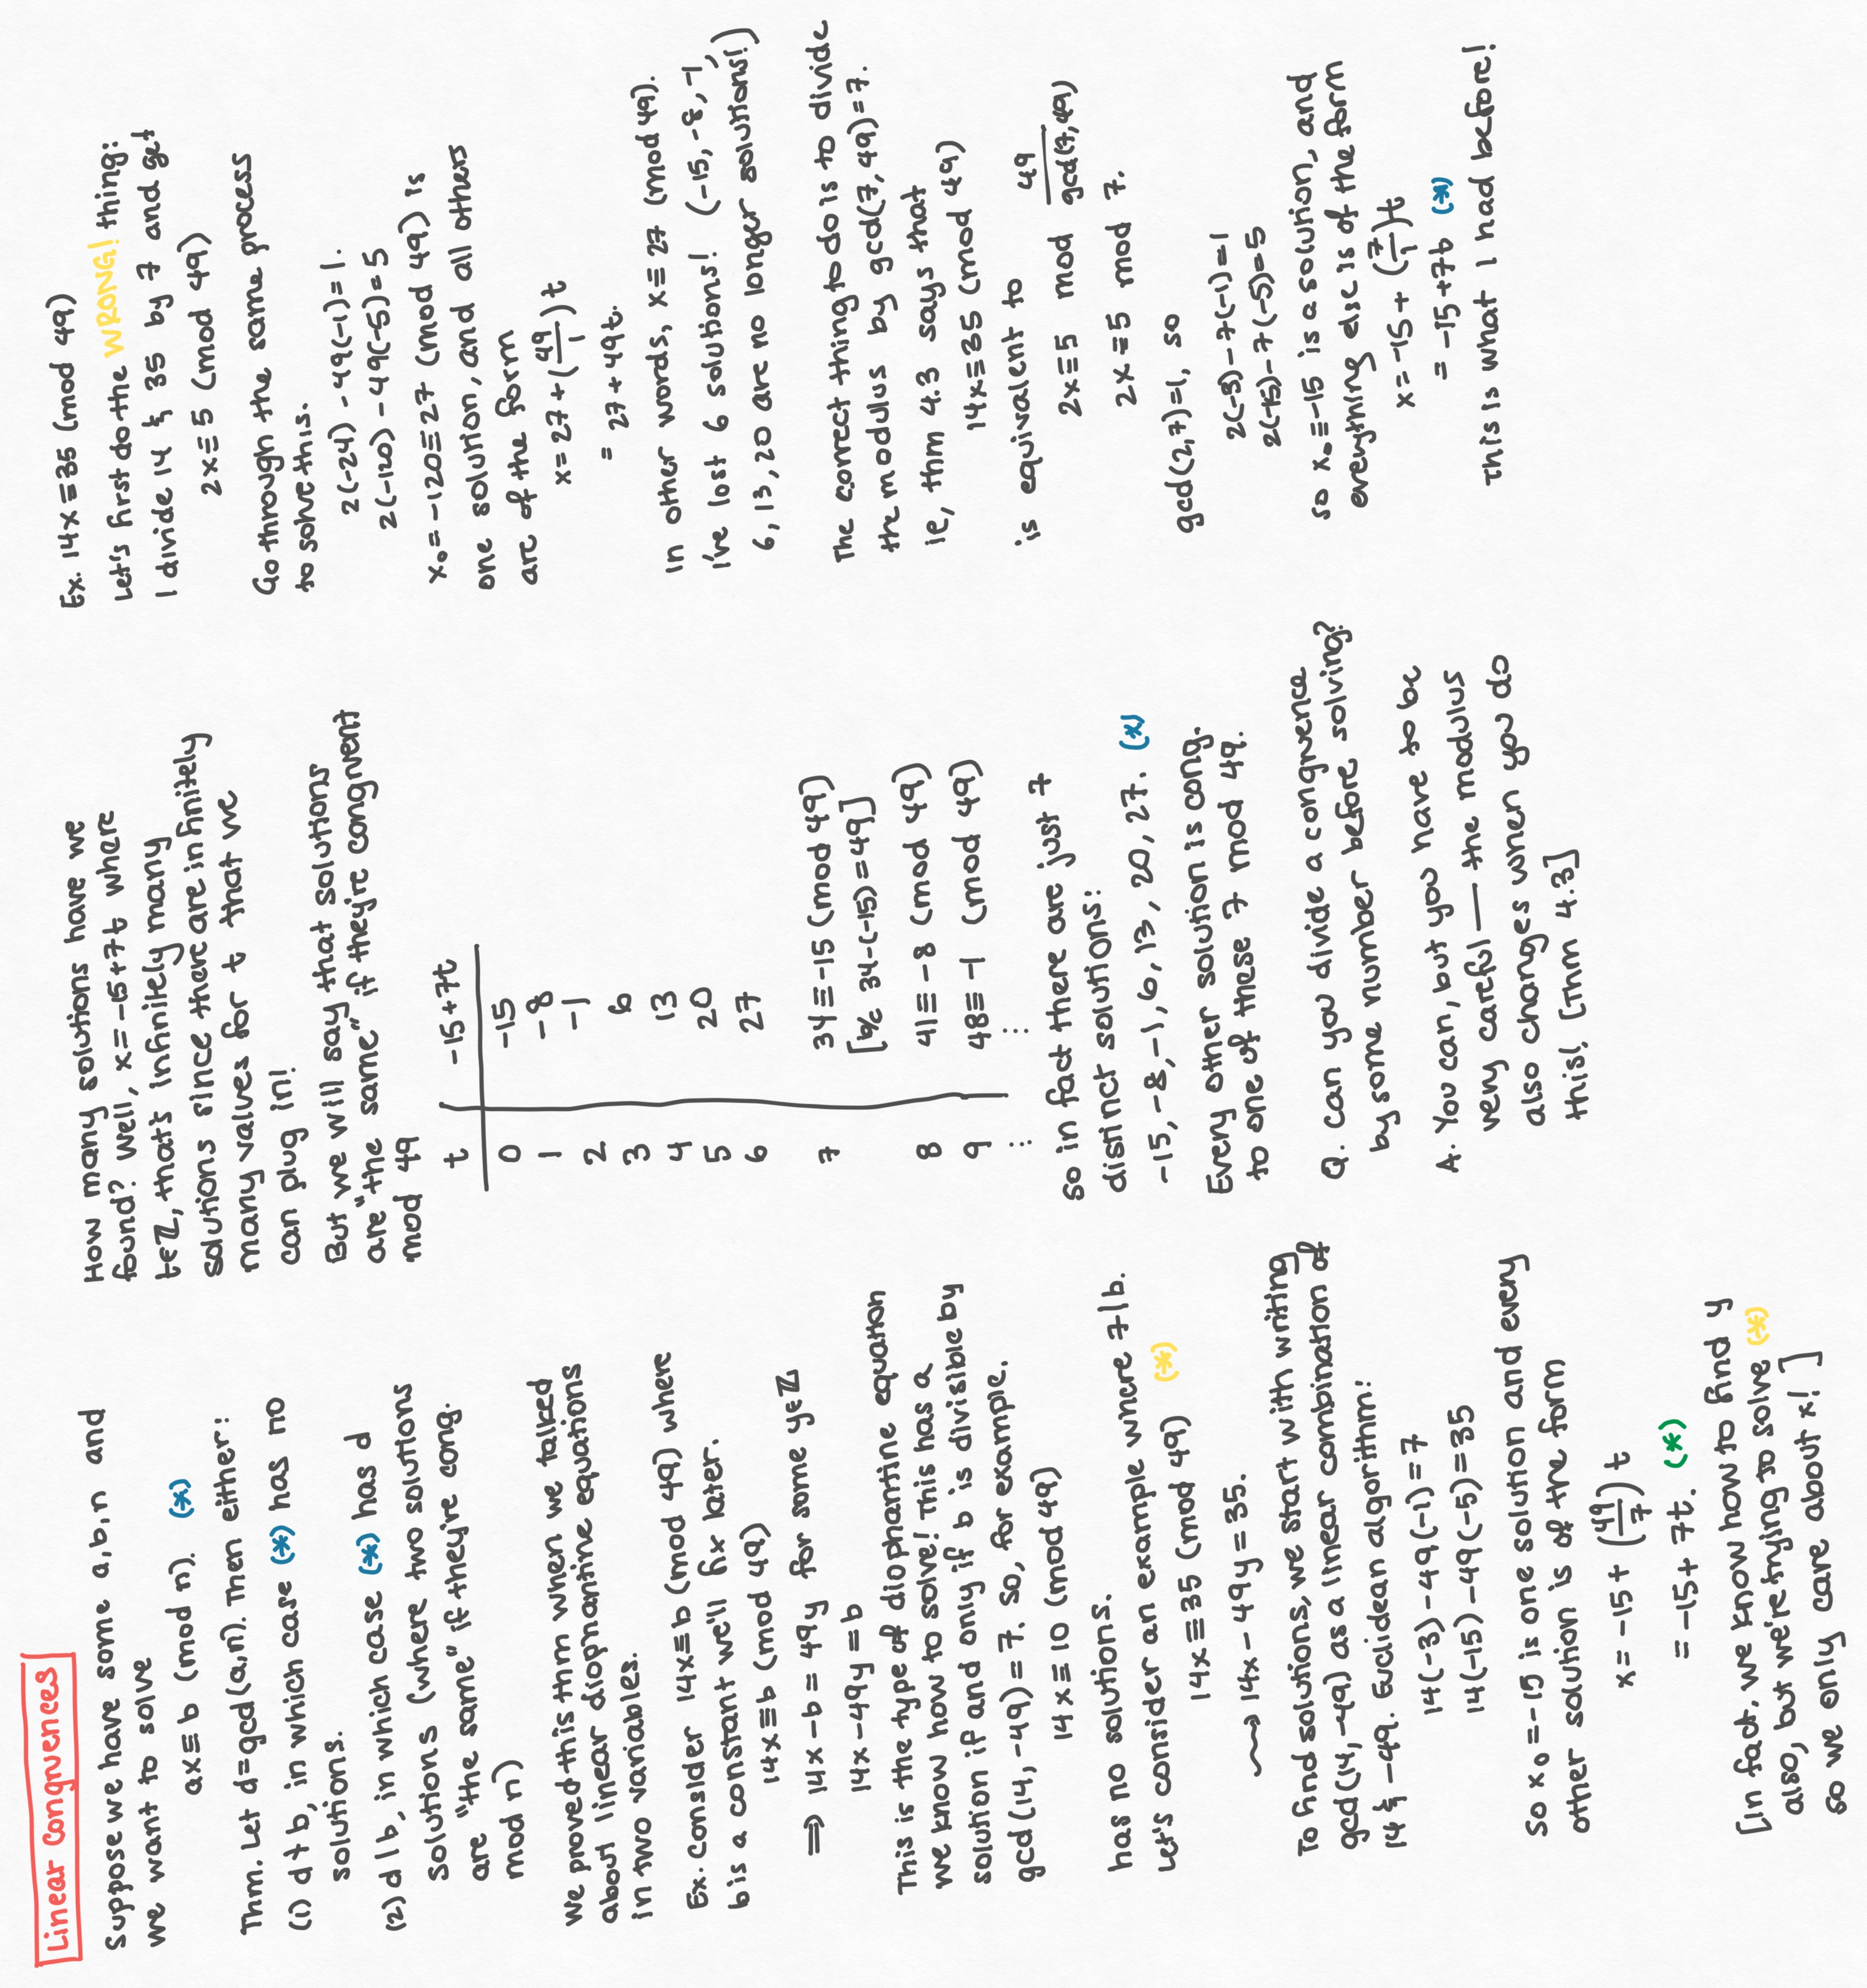 Linear Congruences
Suppose we have some a,b,n and
we want to solve
ax≡b (mod n). (*)
Thm. Let d=gcd(a,n). Then either:
(1) d∤b, in which case (*) has no
solutions.
(2) d|b, in which case (*) has d
solutions (where two solutions
are "the same" if they're cong.
mod n)
We proved this thm when we talked
about linear diophantine equations
in two variables.
Ex. Consider 14x≡b (mod 49) where
b is a constant we'll fix later.
14x≡b (mod 49)
⟹ 14x-b=49y for some y∈ℤ
14x-49y=b
This is the type of diophantine equation
we know how to solve! This has a
solution if and only if b is divisible by
gcd(14,-49)=7. So, for example,
14x≡10 (mod 49)
has no solutions.
Let's consider an example where 7|b.
14x≡35 (mod 49) (*)
⇝ 14x-49y=35.
To find solutions, we start with writing
gcd(14,-49) as a linear combination of
14 & -49. Euclidean algorithm:
14(-3)-49(-1)=7
14(-15)-49(-5)=35
So x₀=-15 is one solution and every
other solution is of the form
x=-15+(49/7)t
=-15+7t. (*)
[In fact, we know how to find y
also, but we're trying to solve (*)
so we only care about x!]
How many solutions have we
found? Well, x=-15+7t where
t∈ℤ, that's infinitely many
solutions since there are infinitely
many values for t that we
can plug in!
But we will say that solutions
are "the same" if they're congruent
mod 49
t -15+7t
0 -15
1 -8
2 -1
3 6
4 13
5 20
6 27
7 34≡-15 (mod 49)
[b/c 34-(-15)=49]
8 41≡-8 (mod 49)
9 48≡-1 (mod 49)
⋮ ⋮
So in fact there are just 7
distinct solutions:
-15,-8,-1,6,13,20,27. (*)
Every other solution is cong.
to one of these 7 mod 49.
Q. Can you divide a congruence
by some number before solving?
A. You can, but you have to be
very careful — the modulus
also changes when you do
this! [Thm 4.3]
Ex. 14x≡35 (mod 49)
Let's first do the WRONG! thing:
I divide 14 & 35 by 7 and get
2x≡5 (mod 49)
Go through the same process
to solve this.
2(-24)-49(-1)=1.
2(-120)-49(-5)=5
x₀=-120≡27 (mod 49) is
one solution, and all others
are of the form
x=27+(49/1)t
=27+49t.
In other words, x≡27 (mod 49).
I've lost 6 solutions! (-15,-8,-1,
6,13,20 are no longer solutions!)
The correct thing to do is to divide
the modulus by gcd(7,49)=7.
ie, thm 4.3 says that
14x≡35 (mod 49)
is equivalent to
2x≡5 mod 49/gcd(7,49)
2x≡5 mod 7.
gcd(2,7)=1, so
2(-3)-7(-1)=1
2(-15)-7(-5)=5
so x₀≡-15 is a solution, and
everything else is of the form
x=-15+(7/1)t
=-15+7t (*)
This is what I had before!